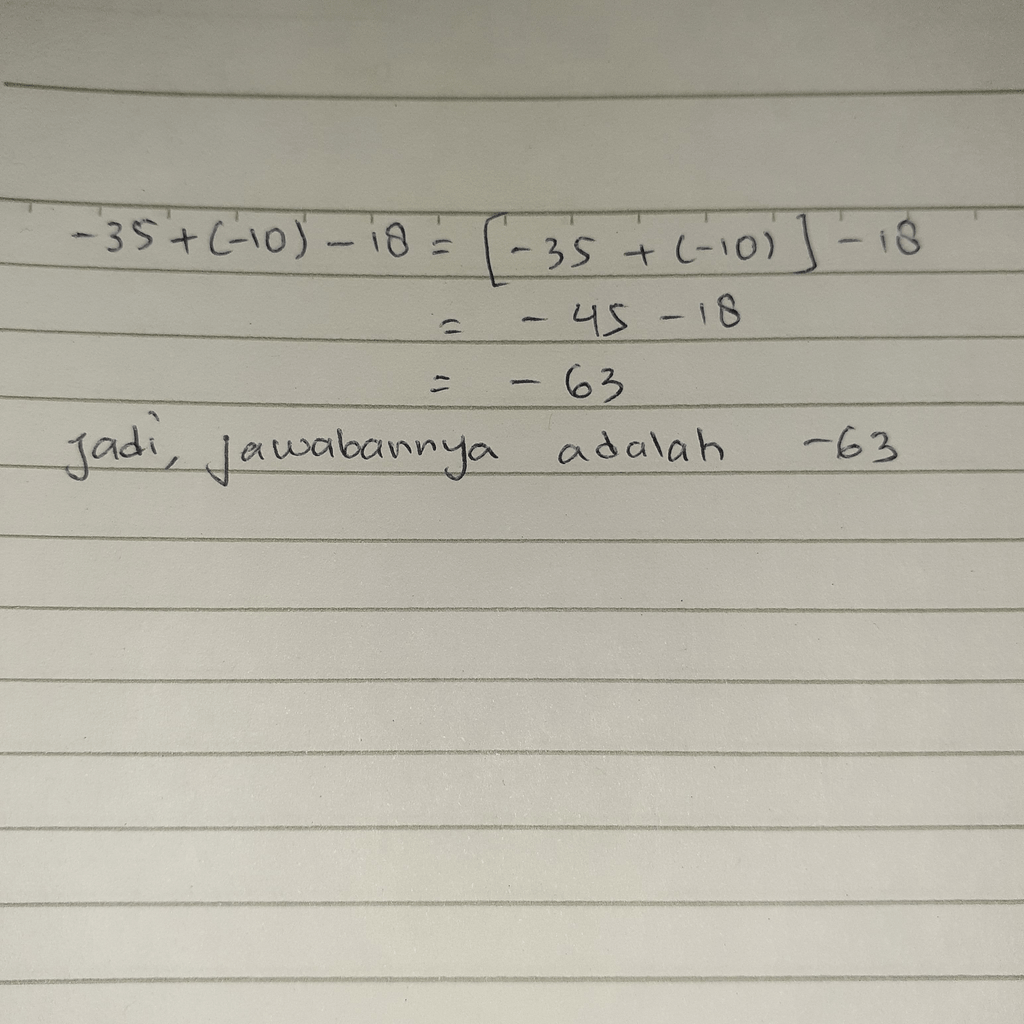 -35 + (-10) - 18 = [-35 + (-10)] - 18
= - 45 - 18
= - 63
Jadi, jawabannya adalah -63